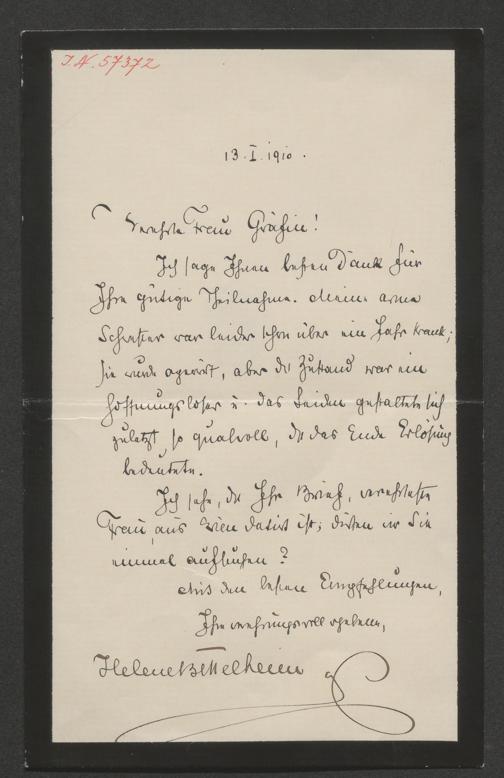 I.N. 57372
13. I. 1910.
Verehrte Frau Gräfin!
Ich sage Ihnen besten Dank für
Ihre gütige Theilnahme. Meine arme
Schwester war leider schon über ein Jahr krank;
sie wurde operirt, aber der Zustand war ein
hoffnungsloser u. das Leiden gestaltete sich
zuletzt so qualvoll, daß das Ende Erlösung
bedeutete.
Ich sehe, daß Ihr Brief, verehrteste
Frau, aus Wien datirt ist; dürfen wir Sie
einmal aufsuchen?
Mit den besten Empfehlungen,
Ihre verehrungsvoll ergebene,
Helene Bettelheim